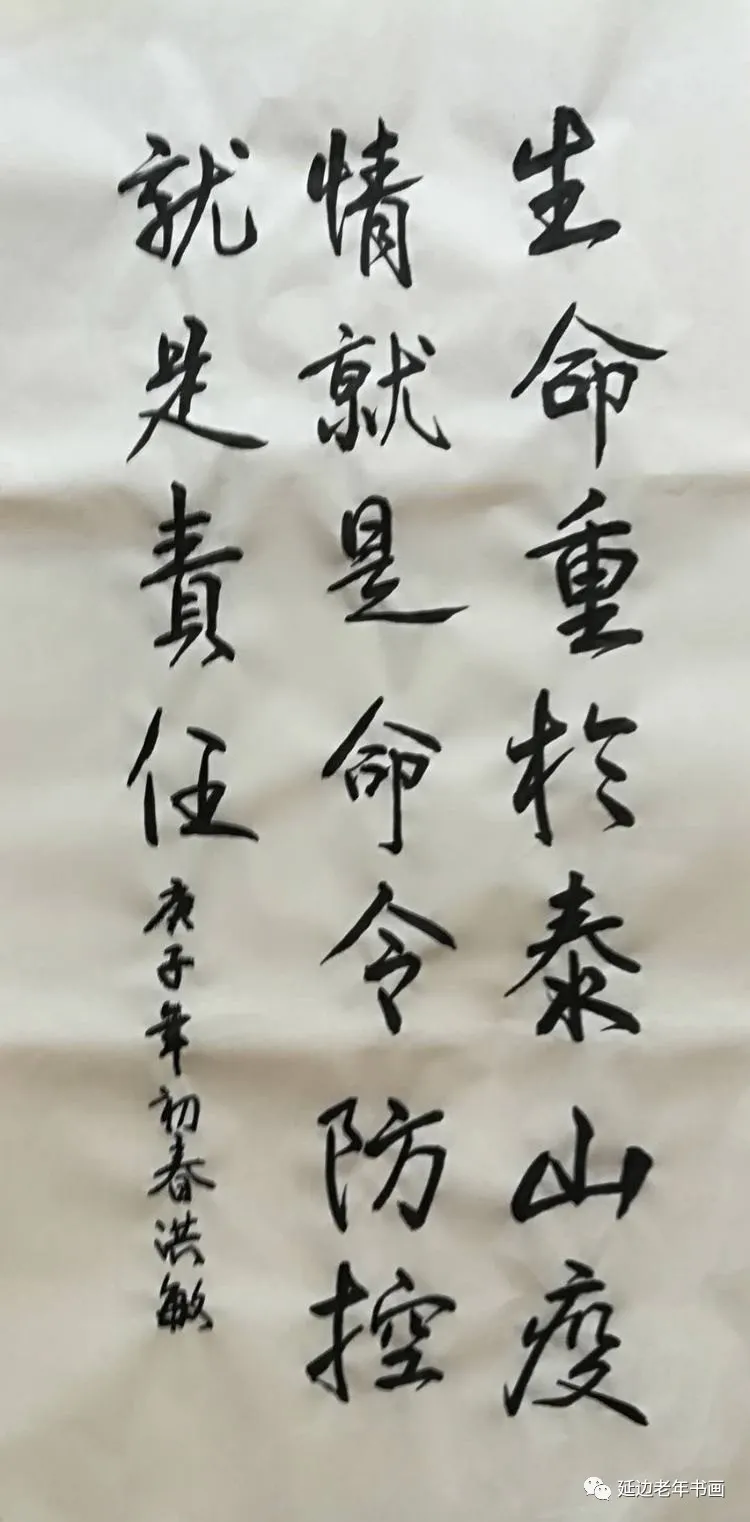 生命重於泰山疫
情就是命令防控
就是責任
庚子年初春洪敏
延边老年书画